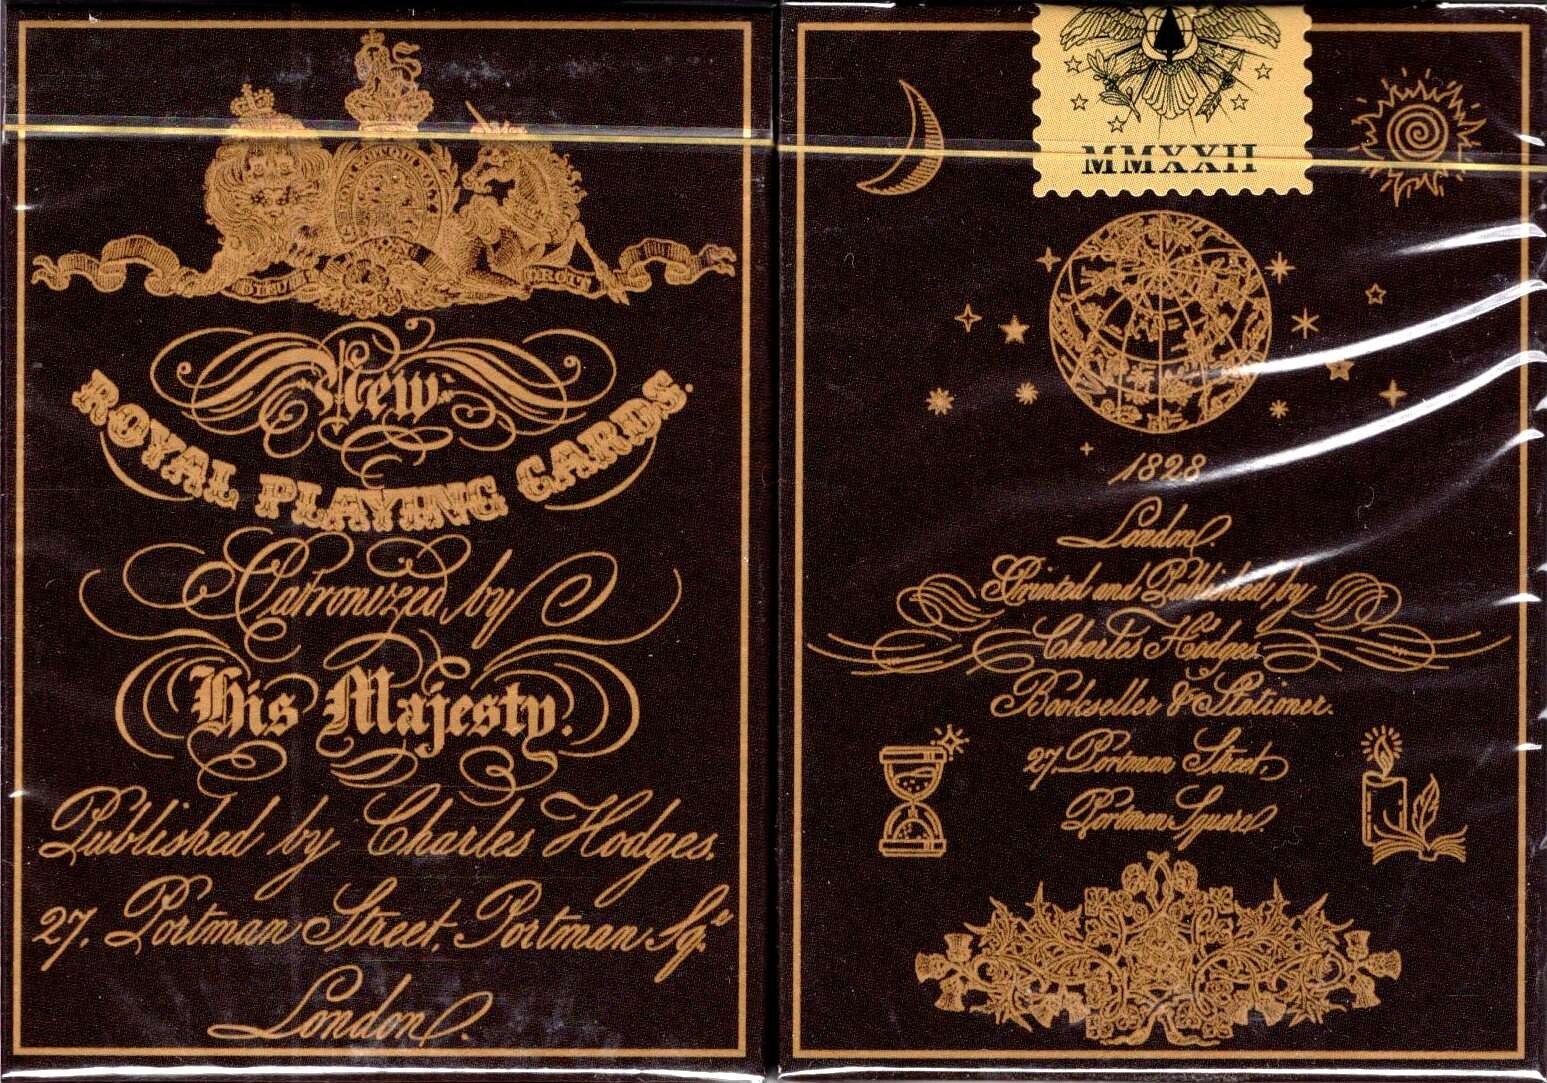 New
ROYAL PLAYING CARDS.
Patronized by
His Majesty.
Published by Charles Hodges.
27, Portman Street, Portman Sqr.
London.
MMXXII
1828
London.
Printed and Published by
Charles Hodges.
Bookseller & Stationer.
27, Portman Street,
Portman Square.